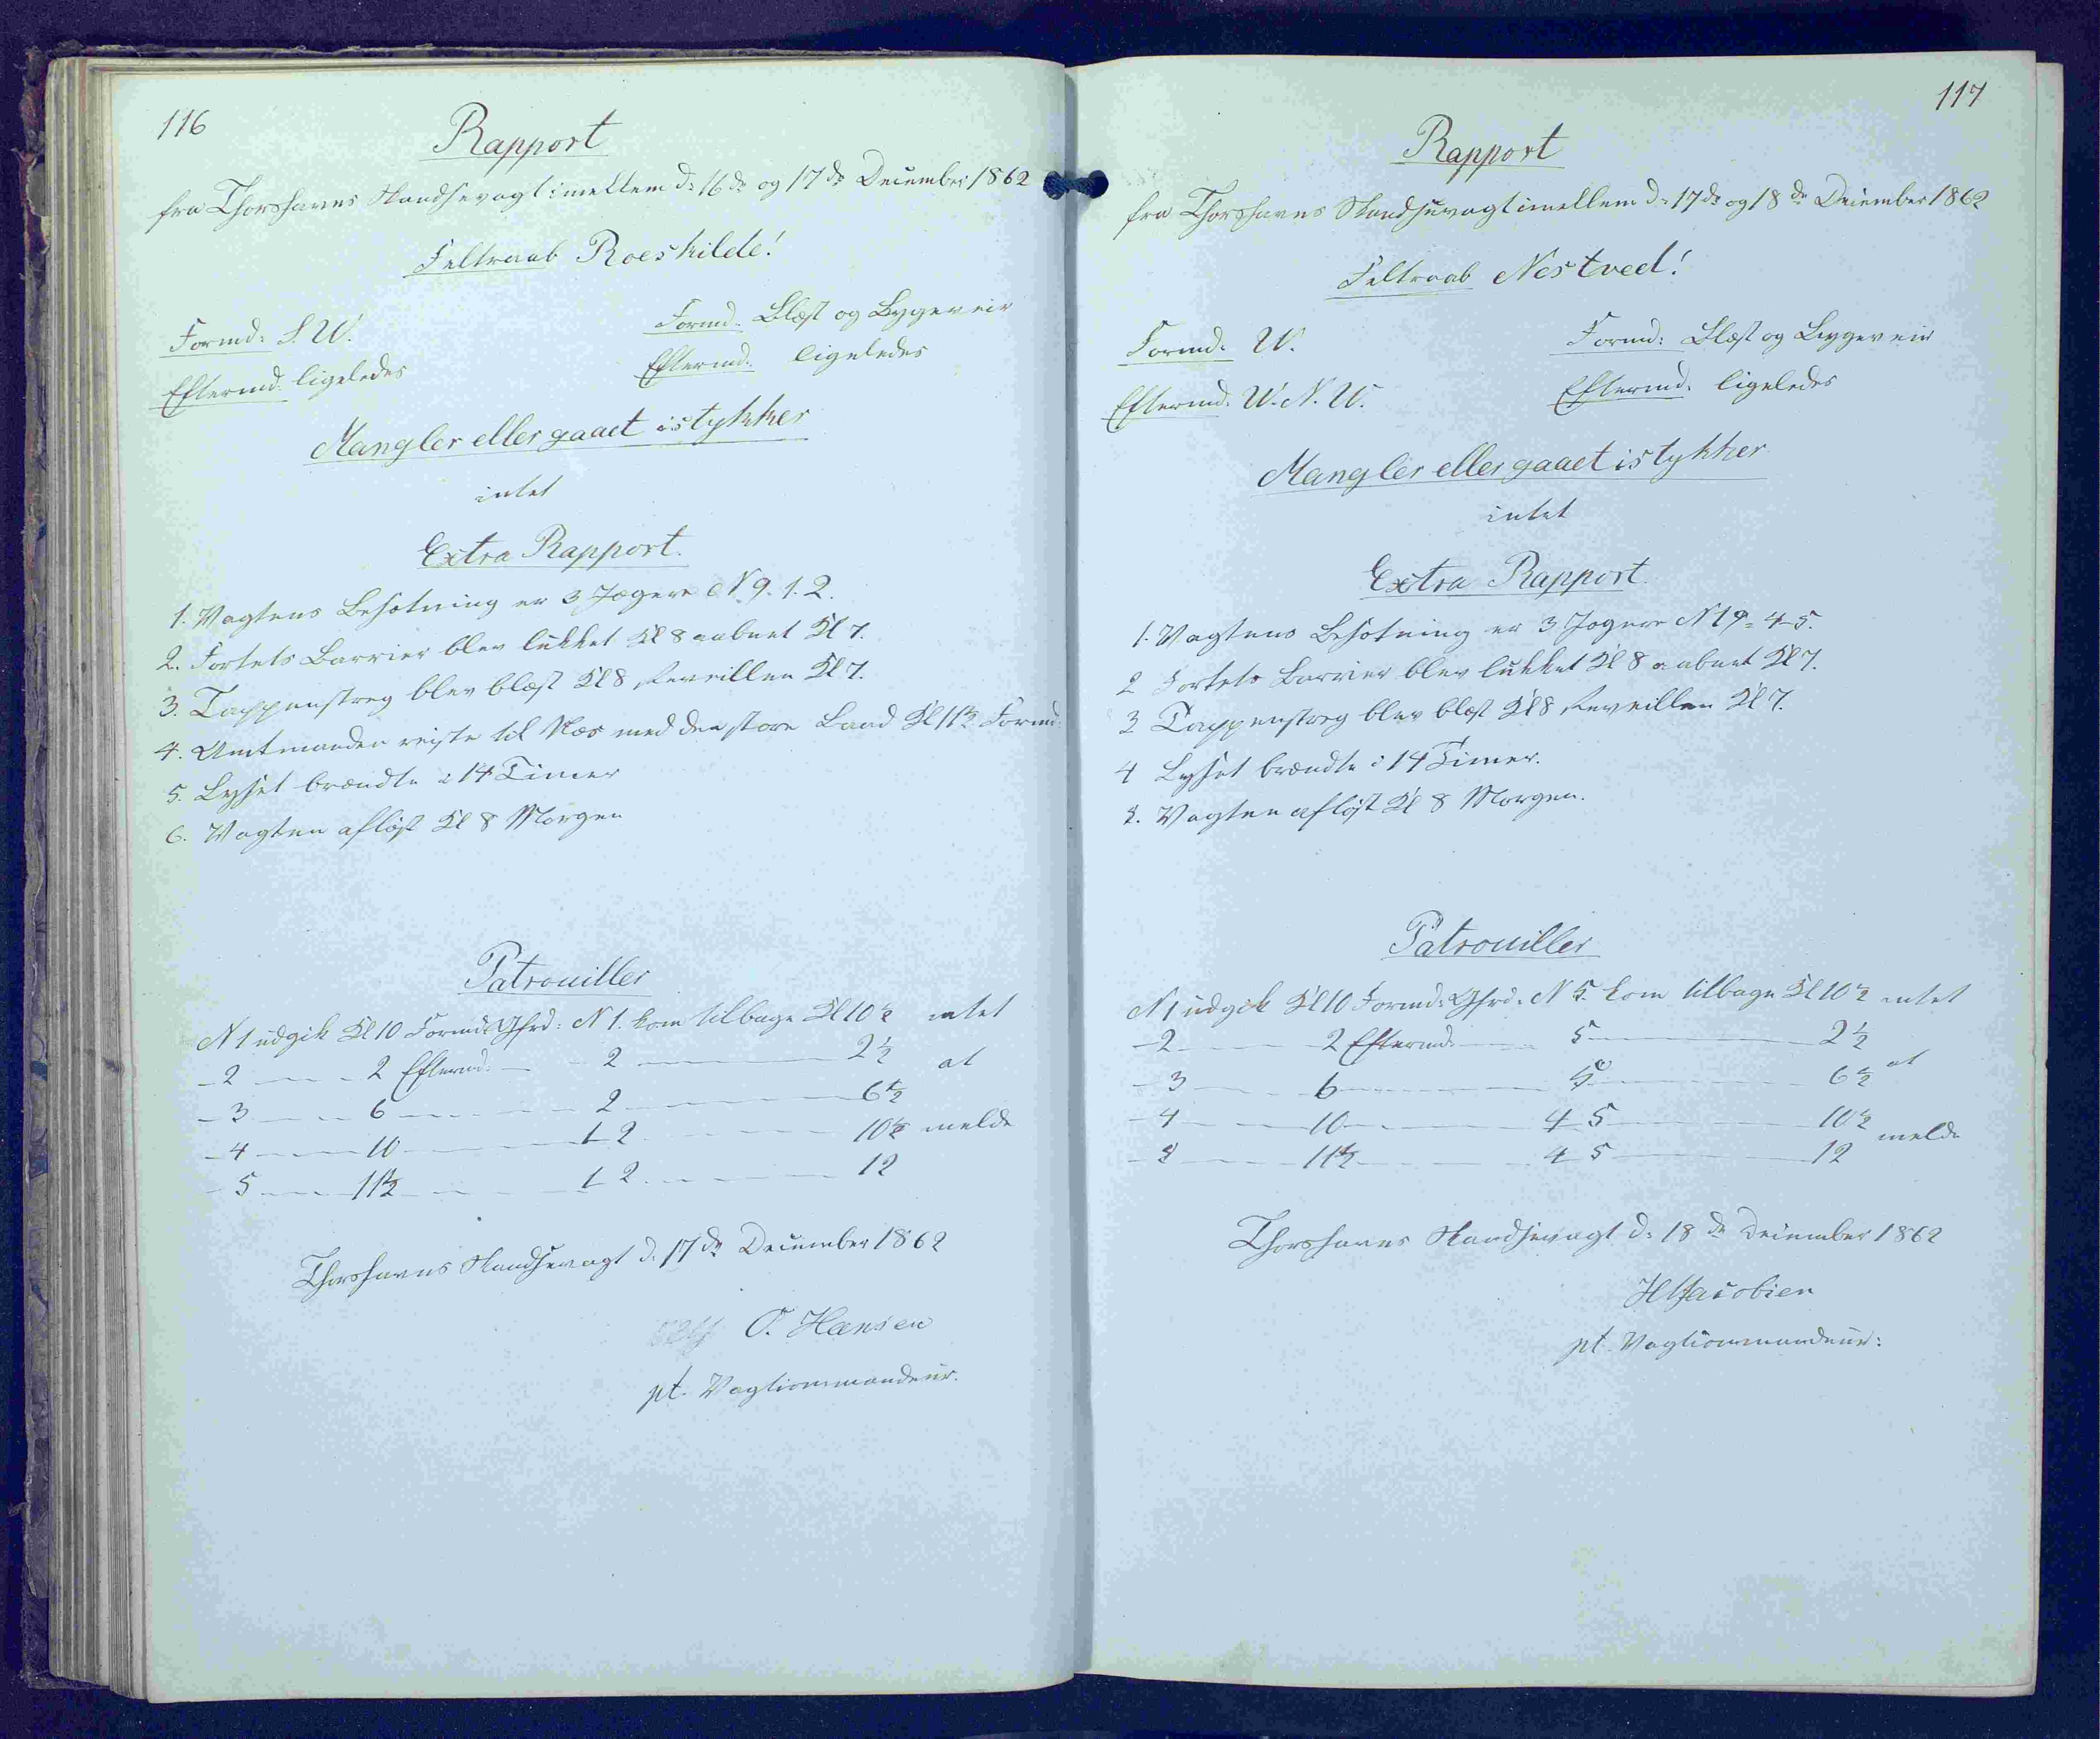 116
Rapport
fra Thorshavns Skandsevagt imellem d: 16de og 17de December 1862
Feltraab Roeskilde!
Formd: S.W. Formd. Blæst og Bygeveir
Eftermd. ligeledes Eftermd. ligeledes
Mangler eller gaaet istykker
intet
Extra Rapport.
1. Vagtens Besætning er 3 Jægere N 9. 1. 2.
2. Fortets Barrier blev lukket Kl 8 aabnet Kl 7.
3. Tappenstreg blev blæst Kl 8 Reveillen Kl 7.
4. Amtmanden reiste til Næs med den store Baad Kl 11½ Formd:
5. Lyset brændte i 14 Timer
6. Vagten afløst Kl 8 Morgen
Patrouiller
N 1 udgik Kl 10 Formd: Gfrd: N 1. kom tilbage Kl 10½ intet
- 2 — - 2 Eftermd. — - 2 — 2½ at
- 3 — 6 — 2 — 6½
- 4 — 10 — 1 2 — 10½ melde
- 5 — 11½ — 1 2 — 12
Thorshavns Skandsevagt d. 17de December 1862
O. Hansen
pt. Vagtcommandeur.
117
Rapport
fra Thorshavns Skandsevagt imellem d: 17de og 18de December 1862
Feltraab Nestved!
Formd. W. Formd: Blæst og Bygeveir
Eftermd. W.N.W. Eftermd. ligeledes
Mangler eller gaaet istykker
intet
Extra Rapport.
1. Vagtens Besætning er 3 Jægere N 19-4-5.
2 Fortets Barrier blev lukket Kl 8 aabnet Kl 7.
3 Tappenstreg blev blæst Kl 8 Reveillen Kl 7.
4 Lyset brændte i 14 Timer.
5. Vagten afløst Kl 8 Morgen.
Patrouiller
N 1 udgik Kl 10 Formd: Gfrd: N 5. kom tilbage Kl 10½ intet
- 2 — 2 Eftermd. — 5 — 2½
- 3 — 6 — 6½ at
- 4 — 10 — 4 5 — 10½
- 5 — 11½ — 4 5 — 12 melde
Thorshavns Skandsevagt d: 18de December 1862
H Jacobsen
pt. Vagtcommandeur: